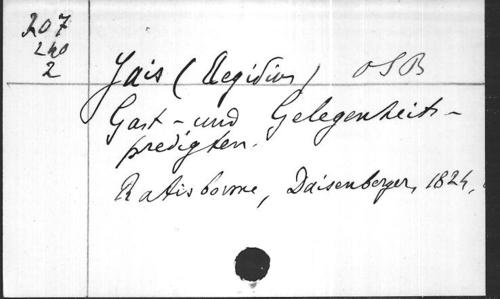 207
240
2
Jais (Aegidius) OSB
Gast- und Gelegenheits-
predigten.
Ratisbonne, Daisenberger, 1824,